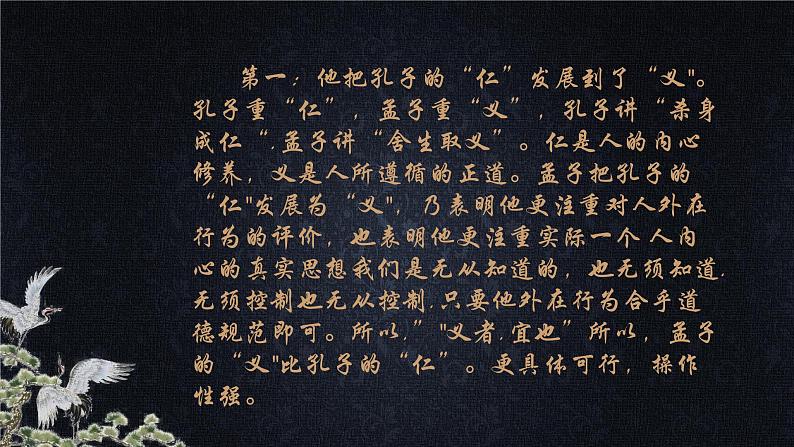 第一：他把孔子的“仁”发展到了“义"。
孔子重“仁”，孟子重“义”，孔子讲“杀身
成仁“.孟子讲“舍生取义”。仁是人的内心
修养，义是人所遵循的正道。孟子把孔子的
“仁"发展为“义"，乃表明他更注重对人外在
行为的评价，也表明他更注重实际一个 人内
心的真实思想我们是无从知道的，也无须知道.
无须控制也无从控制.只要他外在行为合乎道
德规范即可。所以,”"义者.宜也”所以，孟子
的“义"比孔子的“仁”。更具体可行，操作
性强。